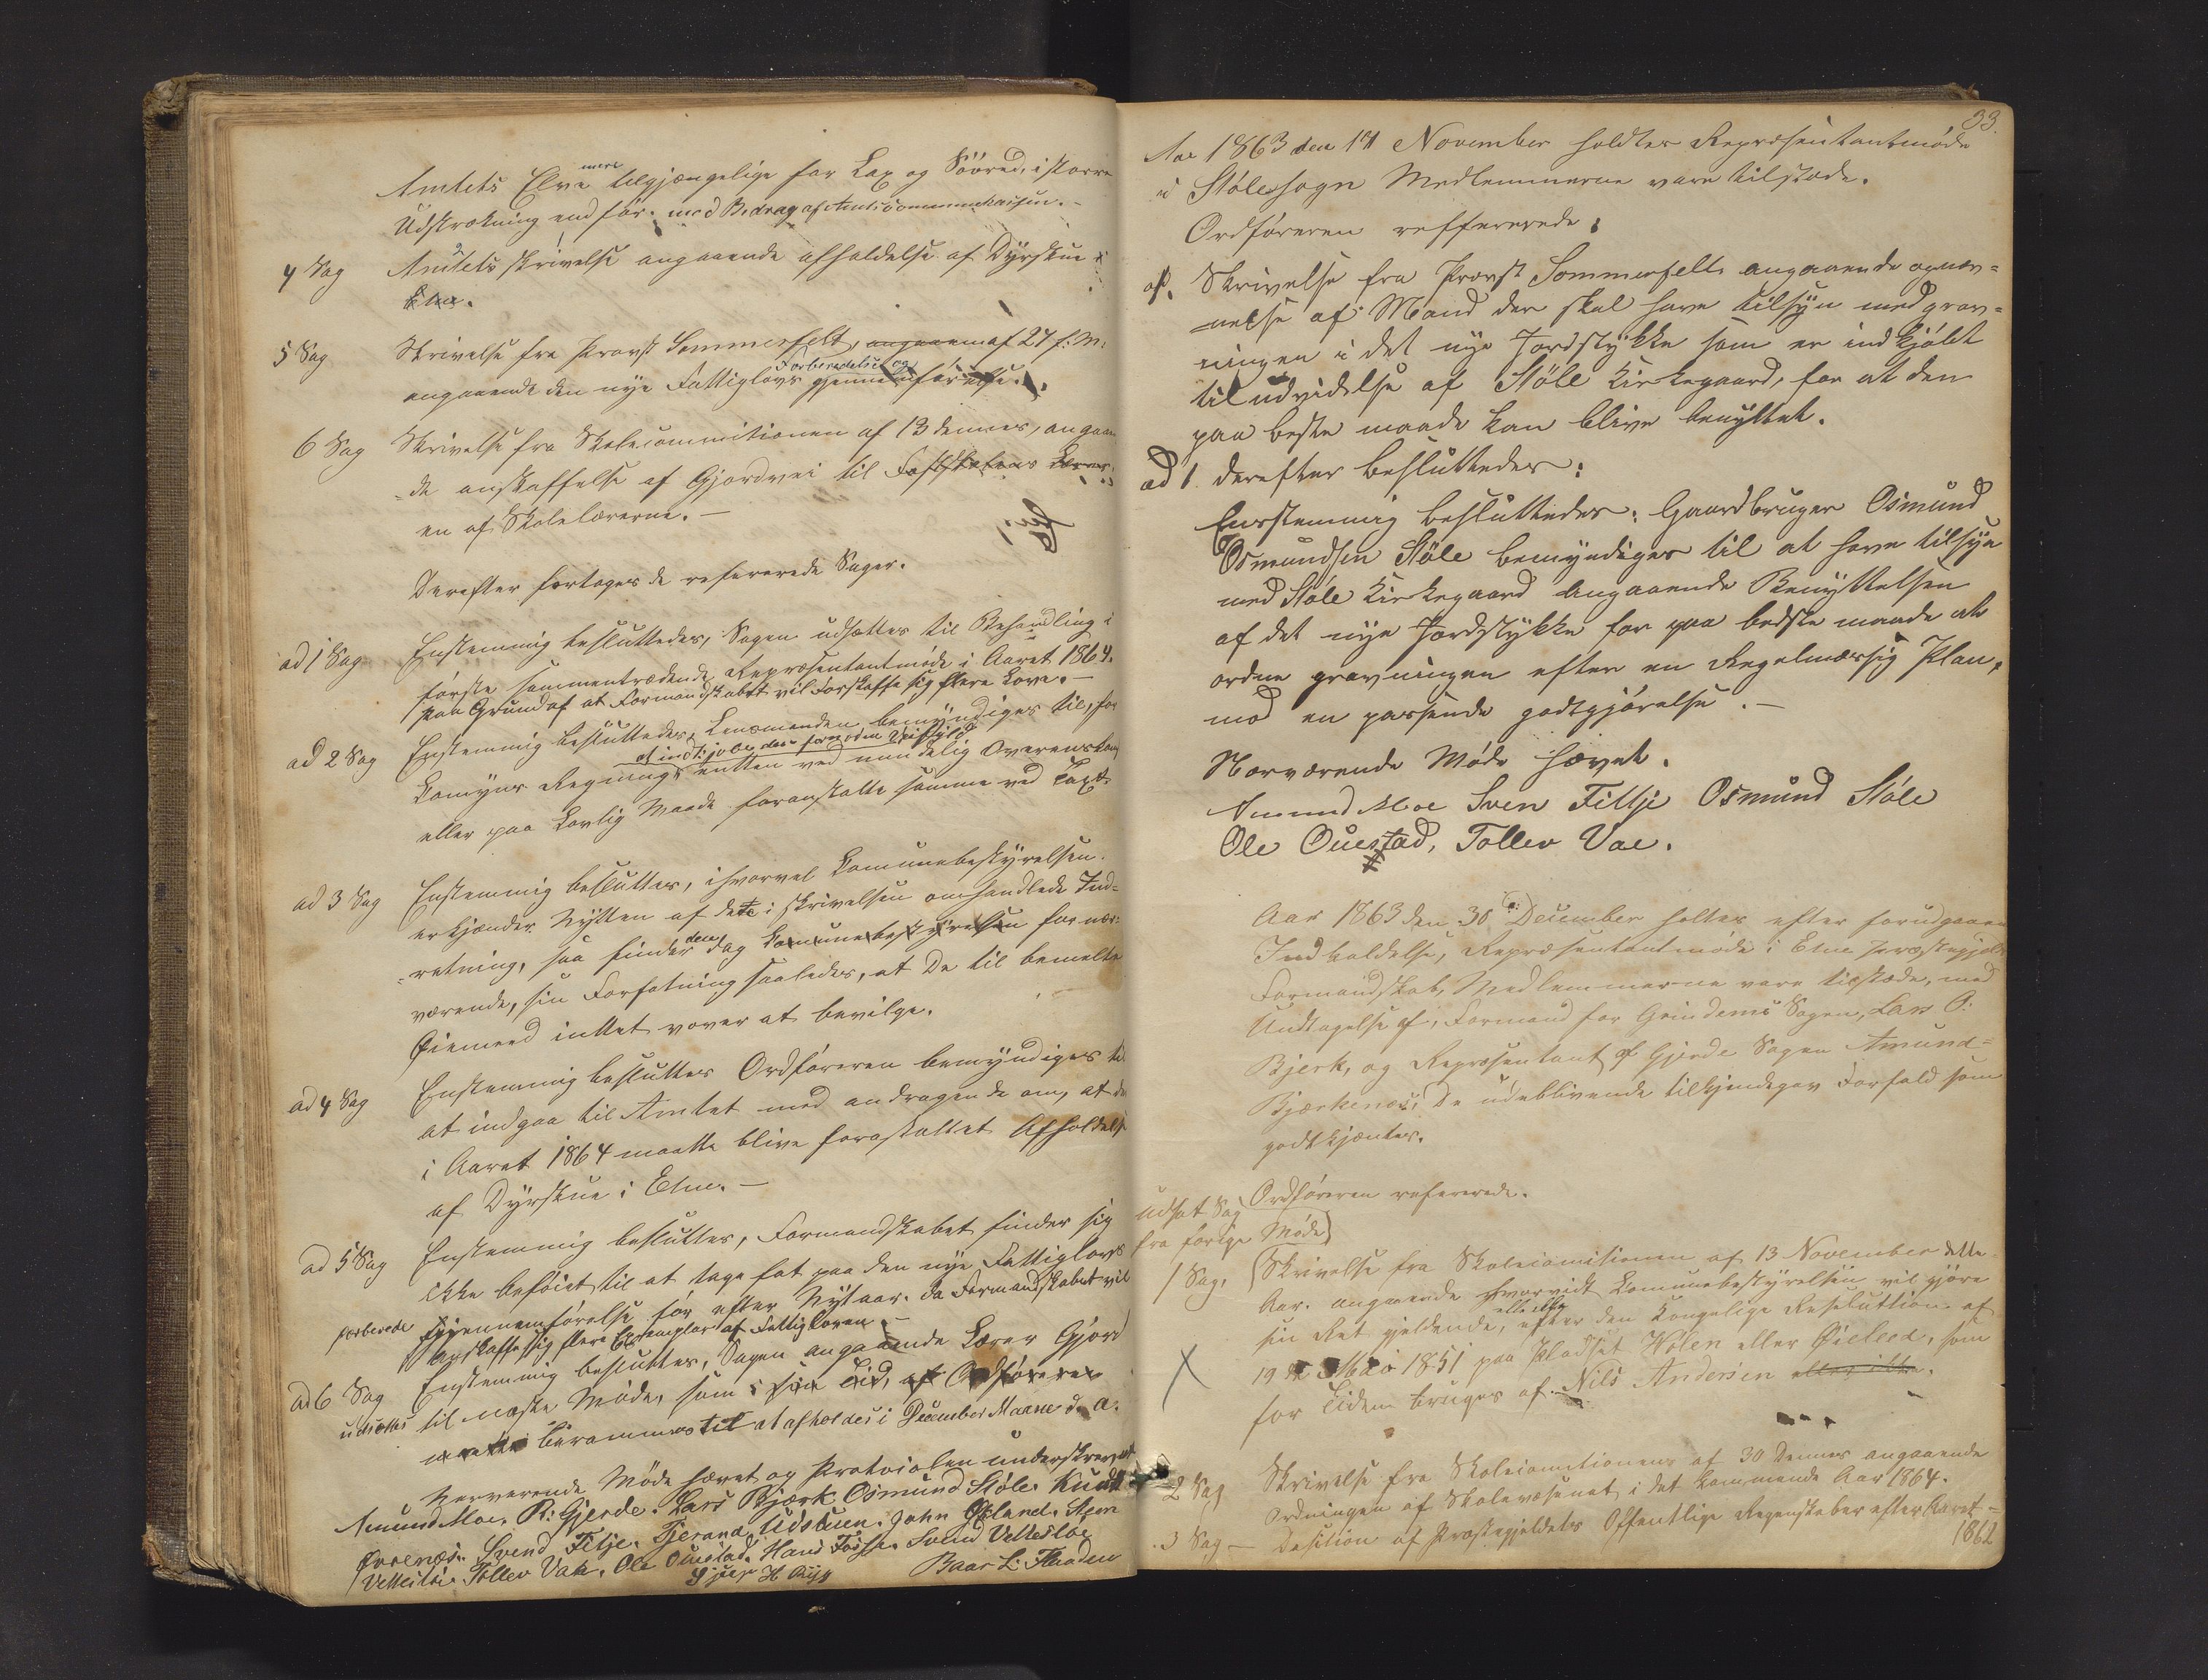 Amtets Elve mere tilgjængelige for Lax og Söörred, i større
Udstrækning end för. med Bidrag af Amtscommunekassen. -
4 Sag Amtets skrivelse angaaende afholdelse af Dyrskue i
Etne.
5 Sag Skrivelse fra Provst Sommerfelt, angaaen af 27 f: M:
angaaende den nye Fattiglovs Forberedelse og gjennemförelse.
6 Sag Skrivelse fra Skolecommitionen af 13 dennes, angaaen
-de anskaffelse af Gjordvei til Fastskolens Lærer
en af Skolelærerne. -
Derefter fortoges de refererede Sager.
ad 1 Sag Enstemmig besluttedes, Sagen udsættes til Behandling i
förste sammentrædende Repræsentantmöde i Aaret 1864.
paa Grund af at Formandskabet vil Forskaffe sig flere Love. -
ad 2 Sag Enstemmig besluttedes, Lensmanden bemyndiges til, for
Comyns Regning, at indkjöbe den fornödne Veifyld entten ved mindelig Overenskomst
eller paa Lovlig Maade foranstalte samme ved Taxt
ad 3 Sag Enstemmig besluttes, ihvorvel Comunebestyrelsen
erkjænder Nytten af dette i skrivelsen omhandlede Ind-
-retning, saa finder den dog Comunebestyrelsen for nær-
værende, sin Forfatning saaledes, at De til bemelte
Öiemeed intet vover at bevilge.
ad 4 Sag Enstemmig besluttes Ordföreren bemyndiges til
at indgaa til Amtet med andragende om, at der
i Aaret 1864 maatte blive foranstaltet Afholdelse
af Dyrskue i Etne. -
ad 5 Sag Enstemmig besluttes, Formandskabet finder sig
ikke beföiet til at tage fat paa den nye Fattiglovs
forberede Gjennemförelse för efter Nytaar. da Formandskabet vil
anskaffe sig flere Exemplar af Fattigloven. -
ad 6 Sag Enstemmig besluttes, Sagen angaaende Lærer Gjord
udsættes til næste Möde, som i sin Tid, af Ordföreren
maatte berammes til at afholdes i December Maane d. A.
Nærværende Möde hævet og Protocolen underskrevet
Amund Moe. R: Gjerde. Lars Bjærk Osmund Stöle. Knudt
Örrenæs. Svend Fitje. Tjerand Udstuen. John Ösland. Sten
Vettestöe. Tollev Vae. Ole Ouestad. Hans Fosse. Svend Vettestöe
Baar L: Flaaden
33.
Aar 1863 den 14 November holdtes Repræsentantmöde
i Stölesogn Medlemmerne vare tilstæde.
Ordföreren reffererede:
Skrivelse fra Provst Sommerfelt angaaende opnæv-
-nelse af Mand der skal have tilsyn med grav-
ningen i det nye Jordstykke som er indkjöbt
til udvidelse af Stöle Kirkegaard, for at den
paa beste maade kan blive benyttet.
ad 1 derefter besluttedes:
Eenstemmig besluttedes: Gaardbruger Osmund
Osmundsen Stöle bemyndiges til at have tilsyn
med Stöle Kirkegaard angaaende Benyttelsen
af det nye Jordstykke for paa bedste maade at
ordne gravningen efter en Regelmæssig Plan,
mod en passende godtgjörelse. -
Nærværende Möde hævet.
Amund Moe Sven Fittje Osmund Stöle
Ole Ouestad, Tollev Vae.
Aar 1863 den 30 December holtes efter forudgaaen
Indkaldelse, Repræsentantmöde i Etne Præstegjelds
Formandskab, Medlemmerne vare tilstæde, med
Undtagelse af, Formand for Grindems Sogn, Lars O:
Bjerk, og Repræsentant af Gjerde Sogn Amund-
Bjærkenæs; De udeblivende tilkjendegav Forfald som
godtkjentes.
Ordföreren refererede.
Udsat Sag
fra forige Möde
1 Sag. Skrivelse fra Skolecomisionen af 13 November dette
Aar. angaaende hvorvidt Comunebestyrelsen vil gjöre
sin Ret gjeldende, eller ikke efter den Kongelige Resoluttion. af
19 Mai 1851 paa Pladset Holen eller Öieleed, som
for Tiden bruges af. Nils Andersen eller ikke.
2 Sag Skrivelse fra Skolecomitionens af 30 Dennes angaaende
Ordningen af Skolevæsenet i det kommende Aar 1864.
3 Sag - Desition af Præstegjeldets Offentlige Regenskaber efter Aaret -
1862